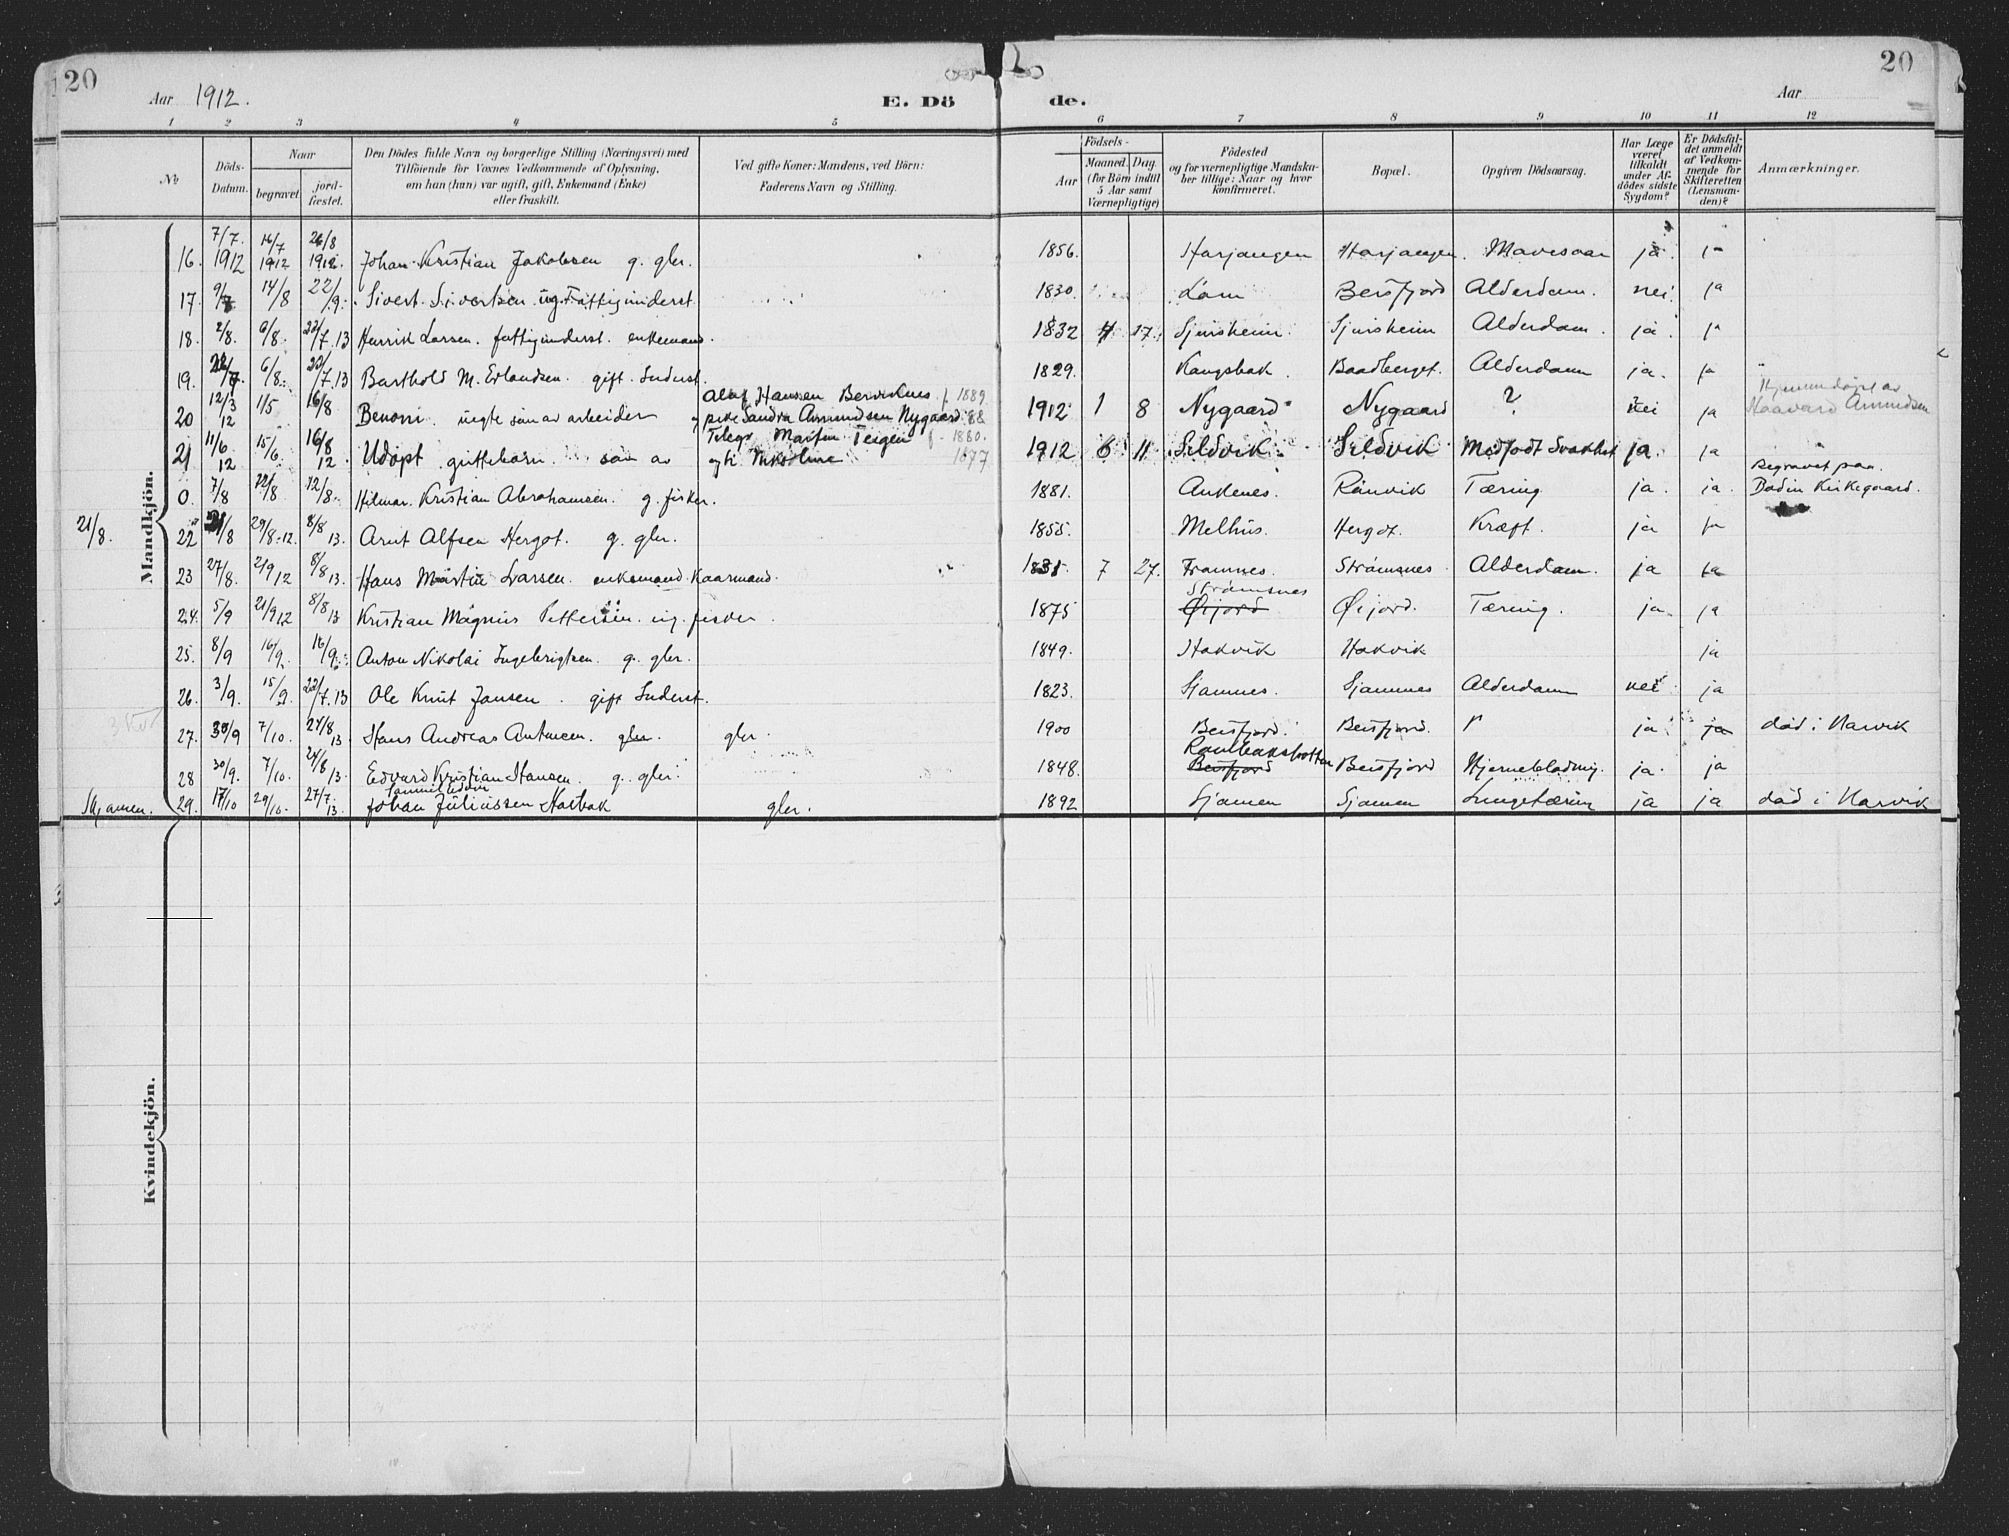 20
20
Aar 1912.
E. Dö de.
Aar
1 2 3 4 5 6 7 8 9 10 11 12
No
Döds-Datum.
Naar
begravet
jord-fæstet.
Den Dödes fulde Navn og borgerlige Stilling (Næringsvei) med
Tilföiende for Voxnes Vedkommende af Oplysning,
om han (hun) var ugift, gift, Enkemand (Enke)
eller fraskilt.
Ved gifte Koner: Mandens, ved Börn:
Faderens Navn og Stilling.
Födsels-
Aar
Maaned. Dag.
(for Börn indtil
5 Aar samt
Værnepligtige)
Födested
og for værnepligtige Mandska-
ber tillige: Naar og hvor
konfirmeret.
Bopæl.
Opgiven Dödsaarsag.
Har Læge
været
tilkaldt
under Af-
dödes sidste
Sygdom?
Er Dödsfal-
det anmeldt
af Vedkom-
mende for
Skifteretten
(Lensman-
den)?
Anmærkninger.
Mandkjön.
16. 7/7. 1912 16/7 1912 26/8 1912. Johan Kristian Jakobsen g. gbr. 1856. Harjangen Harjangen. Mavesaar ja
17. 9/7 14/8 22/9. Sivert Sivertsen ug. Fattigunderst. 1830. Lom Beisfjord Alderdom. nei. ja
18. 2/8. 6/8. 22/7.13 Henrik Larsen. fattigunderst. enkemand. 1832 4 17. Sjursheim. Sjursheim Alderdom. ja.
19. 6/8. 22/7.13 Barthold M. Erlandsen. gift. Underst. 1829. Baadberget. Alderdom ja.
Olaf Hansen f. 1889
20 12/3 12 1/5 16/8 Benoni. uegte søn av arbeider pike Sandra Amundsen Nygaard 88 1912 1 8 Nygaard Nygaard ? nei ja
Haavard Amundsen
Telegr. Martin Teigen f. 1880.
21 11/6 12 15/6 16/8 12. Udøpt guttebarn. søn av 1877 1912 6 11 Sildvik. Sildvik Medfødt Svakhet ja. ja
Begravet paa
0. 7/8 12/8 12/8. Hilmar Kristian Abrahamsen. g. fisker. 1881. Ankenes. Rånvik Tæring ja. ja. Bodin Kirkegaard.
21/8. 22 21/8 29/8-12. 8/8 13. Arnt Alfsen Hergot. g. gbr. 1855. Melhus. Hergot. Kræft. ja
23 27/8. 2/9 12 8/8 13. Hans Martin Larsen. enkemand. Kaarmand. 7 27. Framnes. Strømsnes Alderdom. ja ja
Strømsnes
24. 5/9 21/9 12 8/8 13 Kristian Magnus Pettersen. ug. fisker. 1875 Øijord Øijord. Tæring. ja. ja
25. 8/9 16/9 16/9. Anton Nikolai Ingebrigtsen. g. gbr. 1849. Hakvik Hakvik ja
26. 3/9. 15/9. 22/7.13 Ole Knut Jansen. gift Underst. 1823. Sjamnes. Sjamnes Alderdom nei ja
27. 30/9 7/10. 24/8 13. Hans Andreas Antonsen. gbr. gbr. 1900 Beisfjord. Beisfjord. ja ja død i Narvik
28 30/9. 7/10. 24/8 13. Edvard Kristian Hansen. g. gbr. 1848. Beisfjord Beisfjord Hjerneblødning. ja. ja
Skjamen. 29. 17/10 29/10. 27/7. 13. Johan Juliussen 1892 Sjamen Sjamen Lungetæring ja ja død i Narvik
gbr.
Kvindekjön.